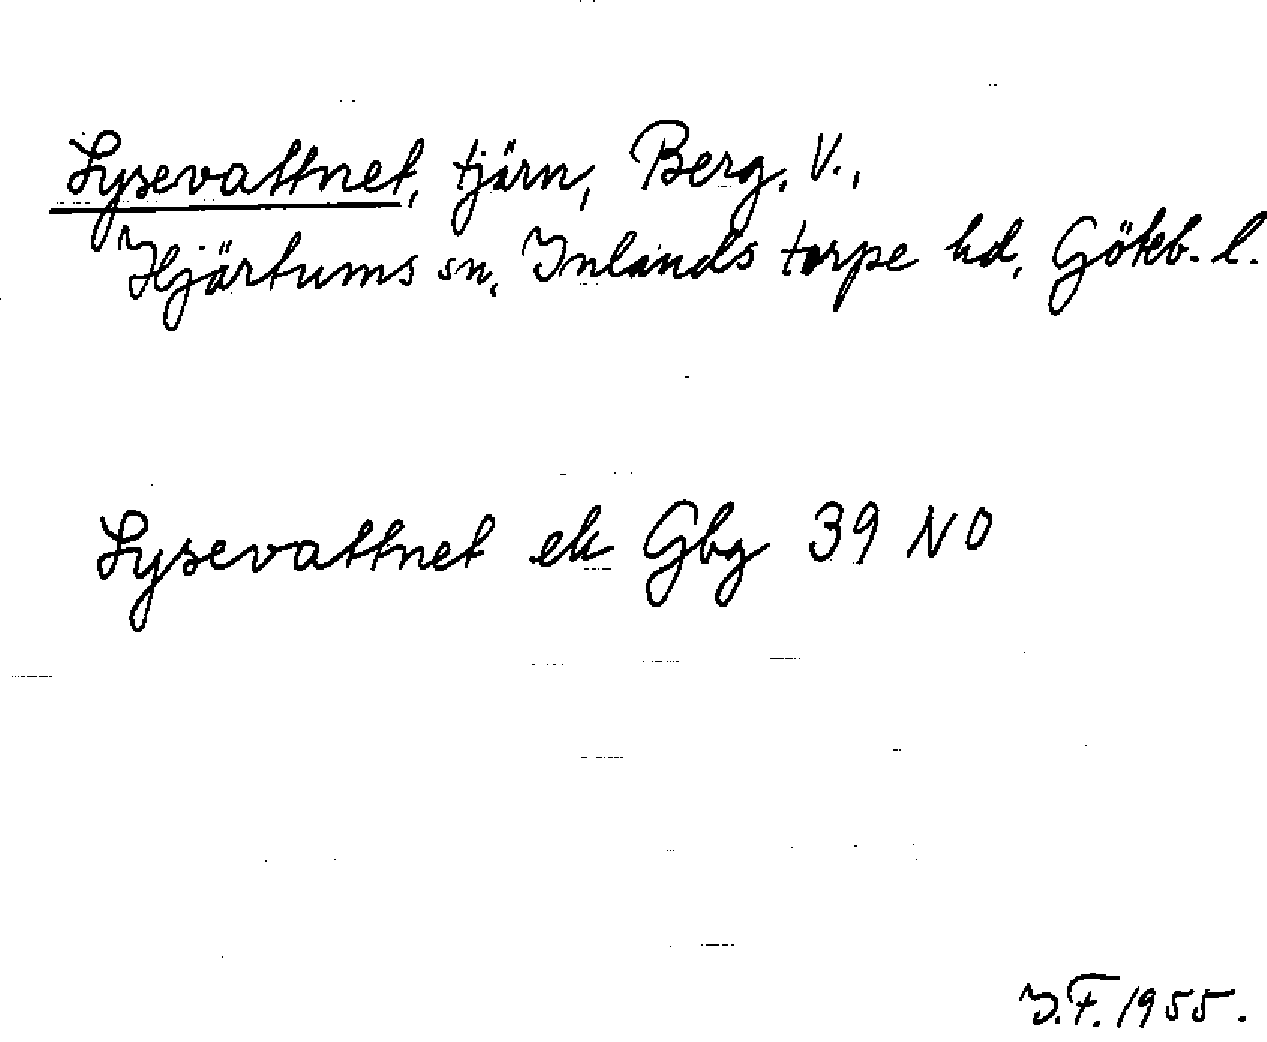 Lysevattnet, tjärn, Berg, V.,
Hjärtums sn, Inlands torpe hd, Göteb. l.
Lysevattnet ek Gbg 39 NO
I.F. 1955.